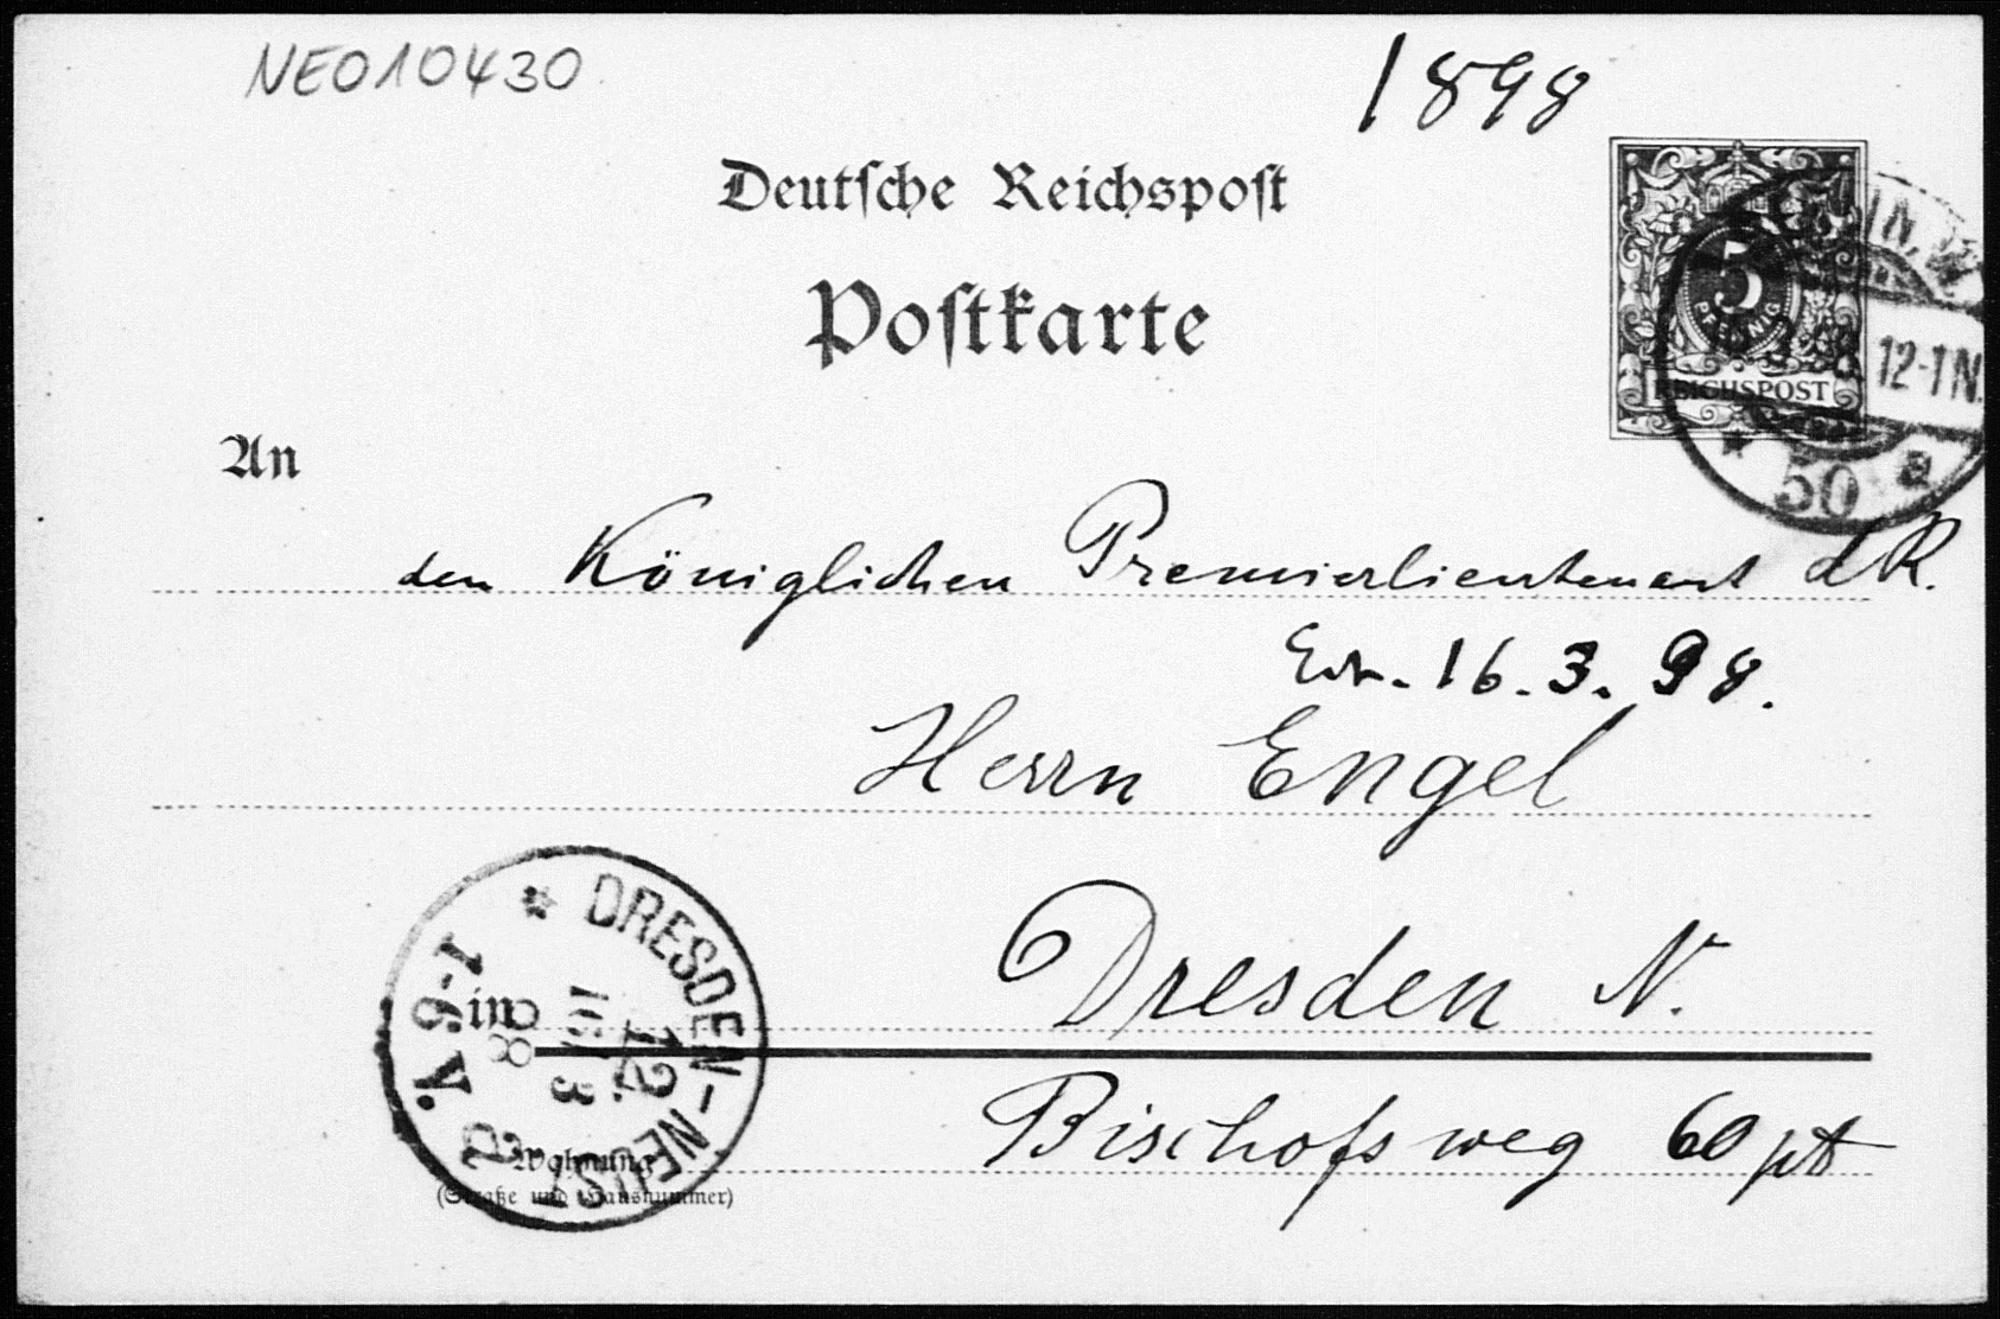 NEO10430
1898
Deutsche Reichspost
Postkarte
5
PFENNIG
REICHSPOST
12-1N.
* 50 a
An
den Königlichen Premierlieutenant d R.
16.3.98.
Herrn Engel
Dresden N.
in
Bischofsweg 60 pt
Wohnung
(Straße und Hausnummer)
* DRESDEN-NEUST
12.
16 3
98